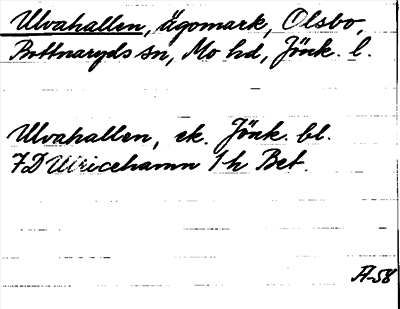 Ulvahallen, ägomark, Olsbo,
Bottnaryds sn, Mo hd, Jönk. l.
Ulvahallen, ek. Jönk. bl.
7D Ulricehamn 1 h Bet.
A-58